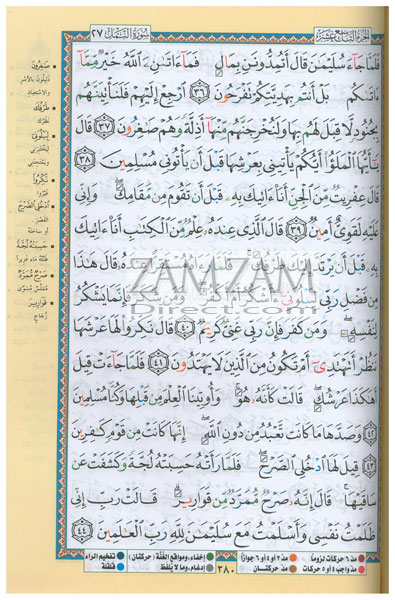 الجزء التاسع عشر
سورة النمل ٢٧
فَلَمَّا جَآءَ سُلَيْمَٰنَ قَالَ أَتُمِدُّونَنِ بِمَالٍ فَمَآ ءَاتَىٰنِۦَ ٱللَّهُ خَيْرٌ مِّمَّآ
ءَاتَىٰكُم بَلْ أَنتُم بِهَدِيَّتِكُمْ تَفْرَحُونَ ٣٦ ٱرْجِعْ إِلَيْهِمْ فَلَنَأْتِيَنَّهُم
بِجُنُودٍ لَّا قِبَلَ لَهُم بِهَا وَلَنُخْرِجَنَّهُم مِّنْهَآ أَذِلَّةً وَهُمْ صَٰغِرُونَ ٣٧ قَالَ
يَٰٓأَيُّهَا ٱلْمَلَؤُا۟ أَيُّكُمْ يَأْتِينِى بِعَرْشِهَا قَبْلَ أَن يَأْتُونِى مُسْلِمِينَ ٣٨
قَالَ عِفْرِيتٌ مِّنَ ٱلْجِنِّ أَنَا۠ ءَاتِيكَ بِهِۦ قَبْلَ أَن تَقُومَ مِن مَّقَامِكَ وَإِنِّى
عَلَيْهِ لَقَوِىٌّ أَمِينٌ ٣٩ قَالَ ٱلَّذِى عِندَهُۥ عِلْمٌ مِّنَ ٱلْكِتَٰبِ أَنَا۠ ءَاتِيكَ
بِهِۦ قَبْلَ أَن يَرْتَدَّ إِلَيْكَ طَرْفُكَ فَلَمَّا رَءَاهُ مُسْتَقِرًّا عِندَهُۥ قَالَ هَٰذَا
مِن فَضْلِ رَبِّى لِيَبْلُوَنِىٓ ءَأَشْكُرُ أَمْ أَكْفُرُ وَمَن شَكَرَ فَإِنَّمَا يَشْكُرُ
لِنَفْسِهِۦ وَمَن كَفَرَ فَإِنَّ رَبِّى غَنِىٌّ كَرِيمٌ ٤٠ قَالَ نَكِّرُوا۟ لَهَا عَرْشَهَا
نَنظُرْ أَتَهْتَدِىٓ أَمْ تَكُونُ مِنَ ٱلَّذِينَ لَا يَهْتَدُونَ ٤١ فَلَمَّا جَآءَتْ قِيلَ
أَهَٰكَذَا عَرْشُكِ قَالَتْ كَأَنَّهُۥ هُوَ وَأُوتِينَا ٱلْعِلْمَ مِن قَبْلِهَا وَكُنَّا مُسْلِمِينَ
٤٢ وَصَدَّهَا مَا كَانَت تَّعْبُدُ مِن دُونِ ٱللَّهِ إِنَّهَا كَانَتْ مِن قَوْمٍ كَٰفِرِينَ
٤٣ قِيلَ لَهَا ٱدْخُلِى ٱلصَّرْحَ فَلَمَّا رَأَتْهُ حَسِبَتْهُ لُجَّةً وَكَشَفَتْ عَن
سَاقَيْهَا قَالَ إِنَّهُۥ صَرْحٌ مُّمَرَّدٌ مِّن قَوَارِيرَ قَالَتْ رَبِّ إِنِّى
ظَلَمْتُ نَفْسِى وَأَسْلَمْتُ مَعَ سُلَيْمَٰنَ لِلَّهِ رَبِّ ٱلْعَٰلَمِينَ ٤٤
صَٰغِرُونَ
ذليلون بالأسر
والاستعباد
طَرْفُكَ
نظرك
لِيَبْلُوَنِي
ليختبرني
ويمتحنني
نَكِّرُوا
غيّروا
ادْخُلِي الصَّرْحَ
القصر
أو ساحته
حَسِبَتْهُ لُجَّةً
ظنّته ماء غزيراً
صَرْحٌ مُّمَرَّدٌ
مملّس مسوّى
قَوَارِيرَ
زجاج
ZAMZAM
Direct.com
مدّ ٦ حركات لزوماً مدّ ٢ أو ٤ أو ٦ جوازاً
مدّ واجب ٤ أو ٥ حركات مدّ حركتان
٣٨٠
إخفاء، ومواقع الغنّة (حركتان) تفخيم الراء
إدغام، وما لا يُلفظ قلقلة